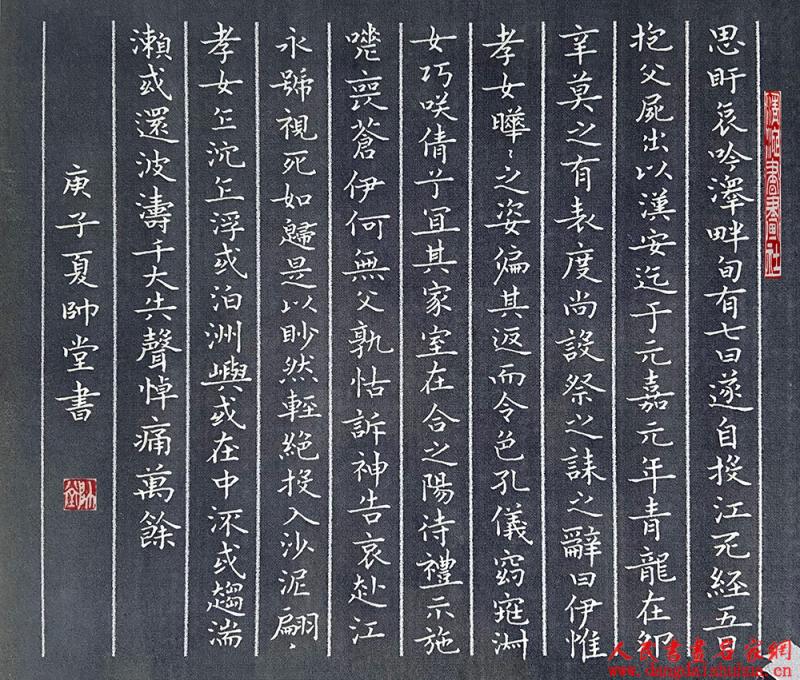 思盱哀吟澤畔旬有七日遂自投江死經五日
抱父屍出以漢安迄于元嘉元年青龍在卯
辛莫之有表度尚設祭之誄之辭曰伊惟
孝女曄〻之姿偏其返而令色孔儀窈窕淑
女巧咲倩兮冝其家室在合之陽待禮示施
嗟喪蒼伊何無父孰怙訴神告哀赴江
永號視死如歸是以眇然輕絕投入沙泥翩〻
孝女乍沉乍浮或泊洲嶼或在中流或趨湍
瀨或還波濤千夫失聲悼痛萬餘
庚子夏帥堂書
人民書畫名家網